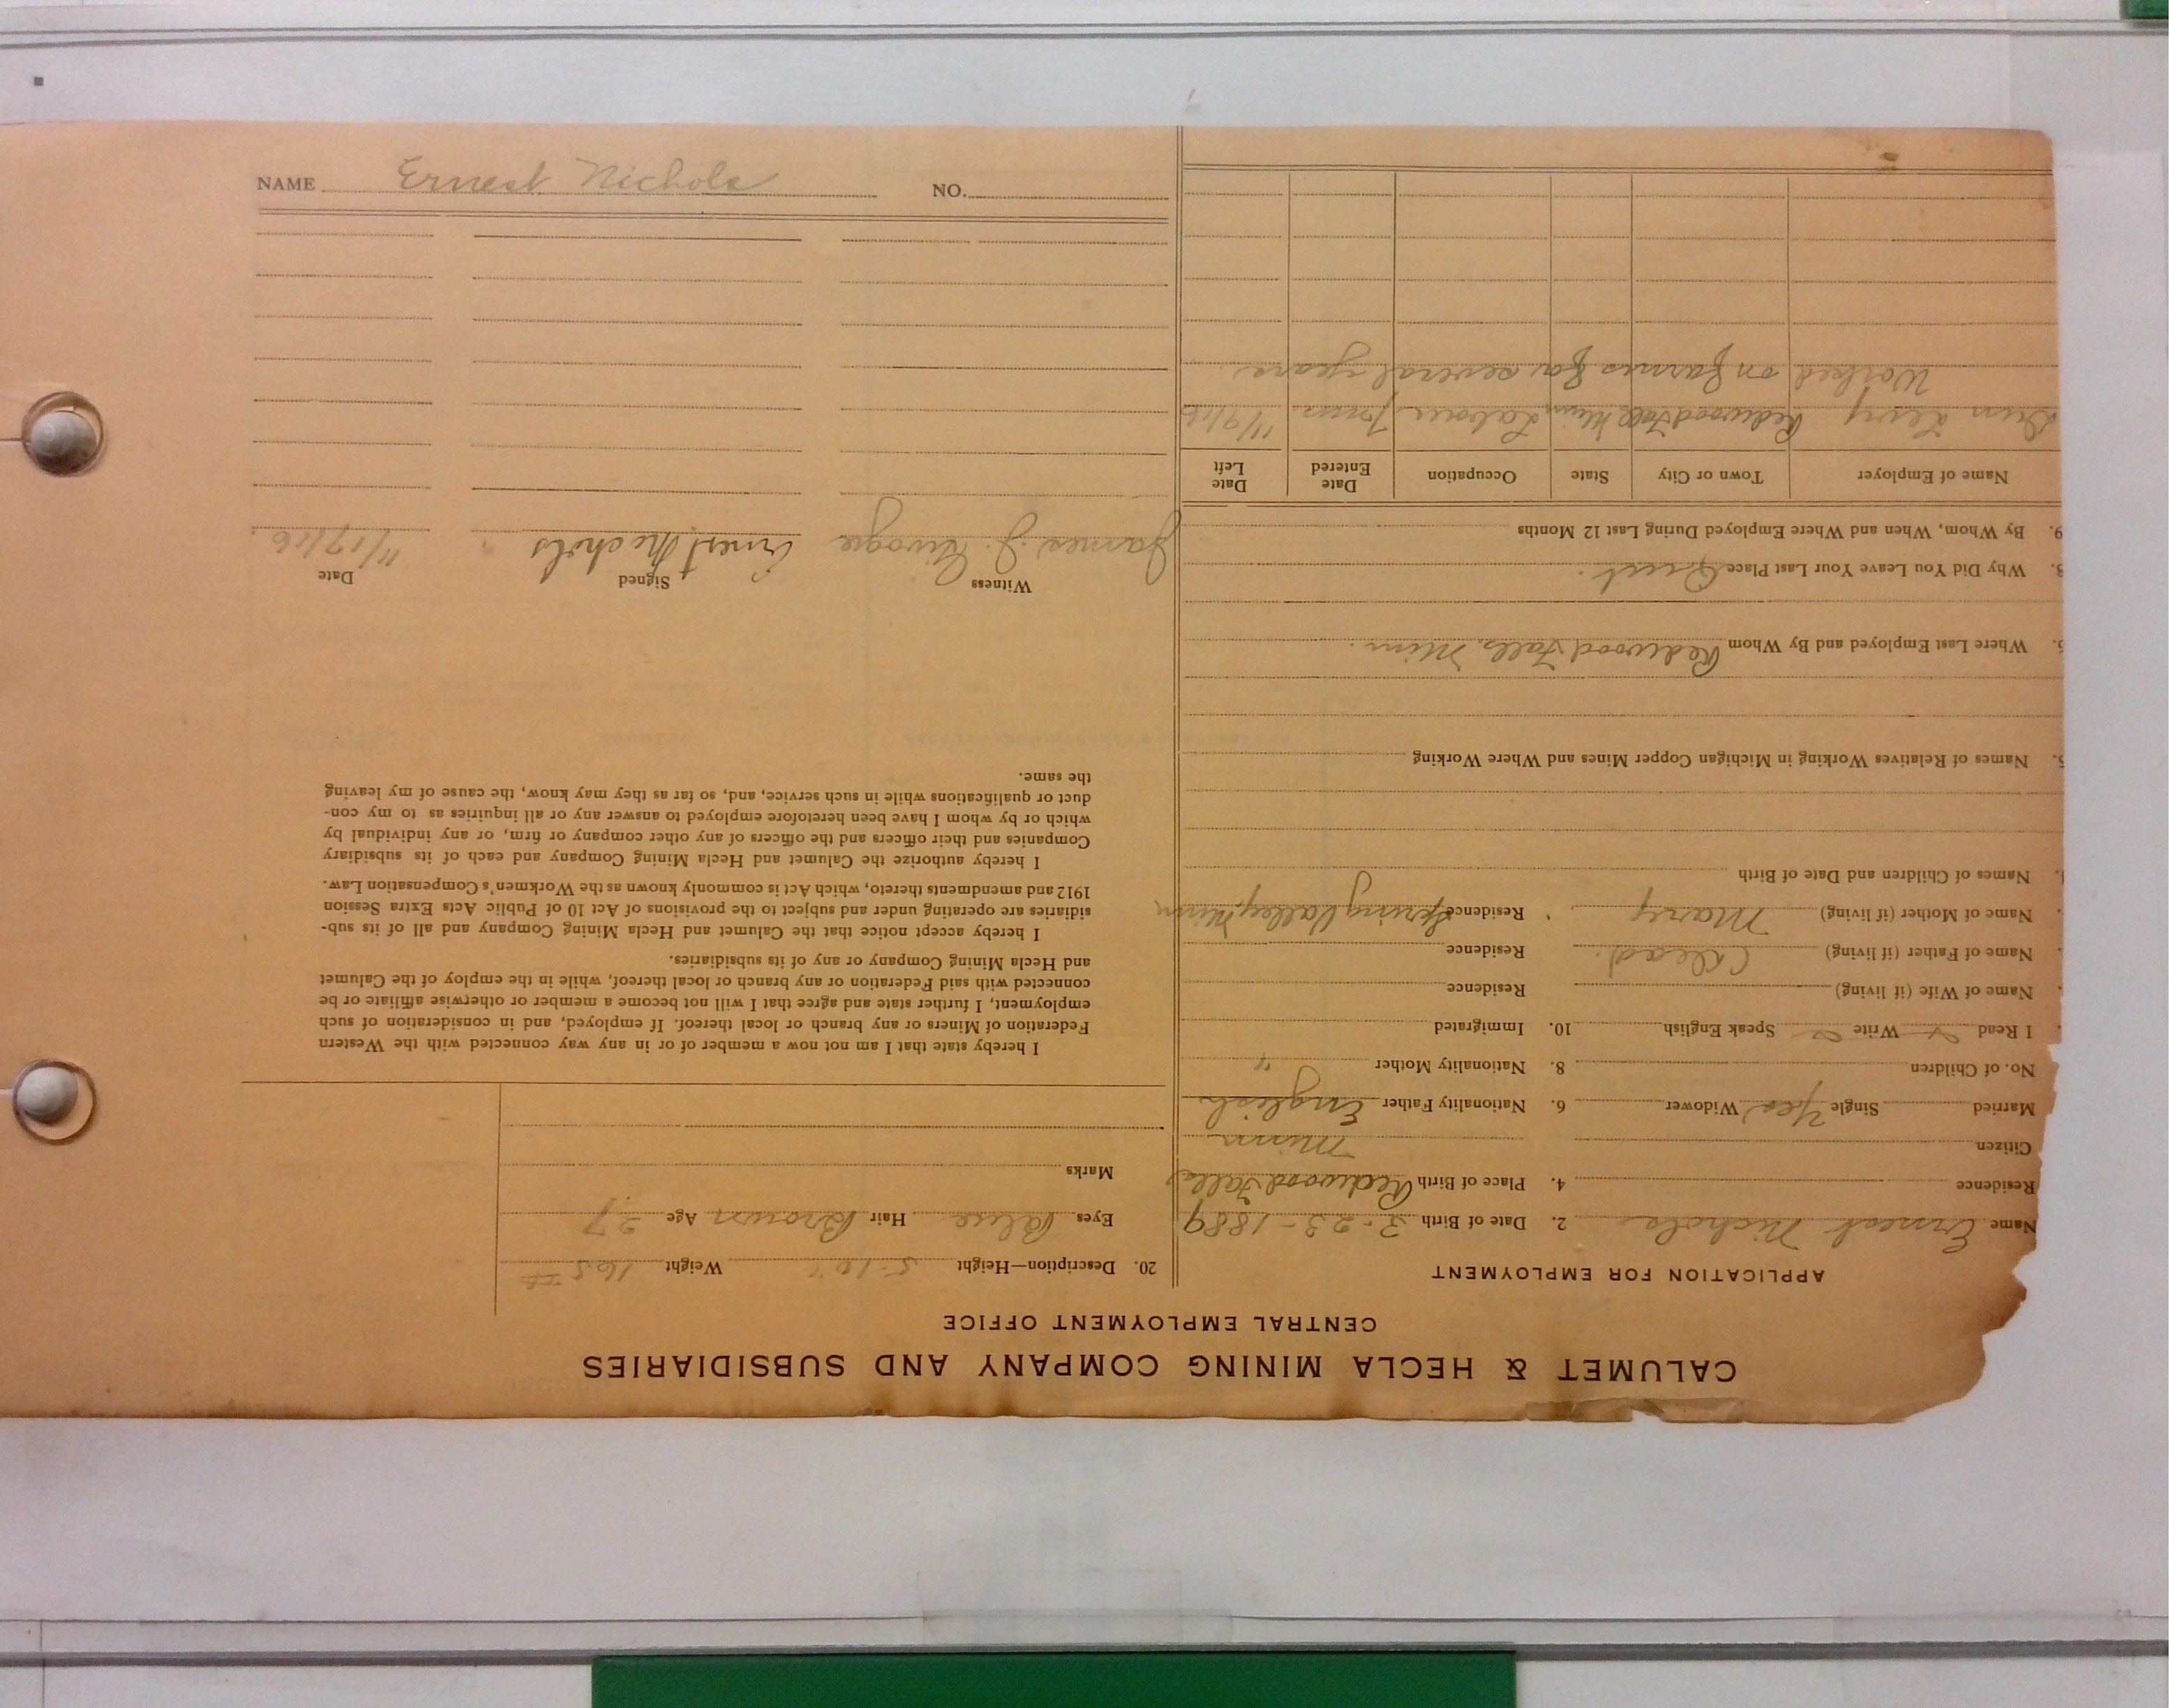 CALUMET & HECLA MINING COMPANY AND SUBSIDIARIES
CENTRAL EMPLOYMENT OFFICE
APPLICATION FOR EMPLOYMENT
Name Ernest Nichols 2. Date of Birth 3-23-1889
Residence 4. Place of Birth Redwood Falls
Citizen Minn
Married Single Yes Widower 6. Nationality Father English
No. of Children 8. Nationality Mother "
I Read Write Speak English 10. Immigrated
Name of Wife (if living) Residence
Name of Father (if living) (Dead. Residence
Name of Mother (if living) Mary Residence Spring Valley, Minn
Names of Children and Date of Birth
Names of Relatives Working in Michigan Copper Mines and Where Working
Where Last Employed and By Whom Redwood Falls, Minn.
8. Why Did You Leave Your Last Place Quit.
9. By Whom, When and Where Employed During Last 12 Months
Name of Employer Town or City State Occupation Date Entered Date Left
Levy Redwood Falls Minn Labour 11/9/16
Worked on farms for several years.
20. Description—Height 5-10" Weight 165 #
Eyes Blue Hair Brown Age 27
Marks
I hereby state that I am not now a member of or in any way connected with the Western
Federation of Miners or any branch or local thereof. If employed, and in consideration of such
employment, I further state and agree that I will not become a member or otherwise affiliate or be
connected with said Federation or any branch or local thereof, while in the employ of the Calumet
and Hecla Mining Company or any of its subsidiaries.
I hereby accept notice that the Calumet and Hecla Mining Company and all of its sub-
sidiaries are operating under and subject to the provisions of Act 10 of Public Acts Extra Session
1912 and amendments thereto, which Act is commonly known as the Workmen's Compensation Law.
I hereby authorize the Calumet and Hecla Mining Company and each of its subsidiary
Companies and their officers and the officers of any other company or firm, or any individual by
which or by whom I have been heretofore employed to answer any or all inquiries as to my con-
duct or qualifications while in such service, and, so far as they may know, the cause of my leaving
the same.
Witness Signed Date
James J. Ernest Nichols 11/17/16.
NAME Ernest Nichols NO.